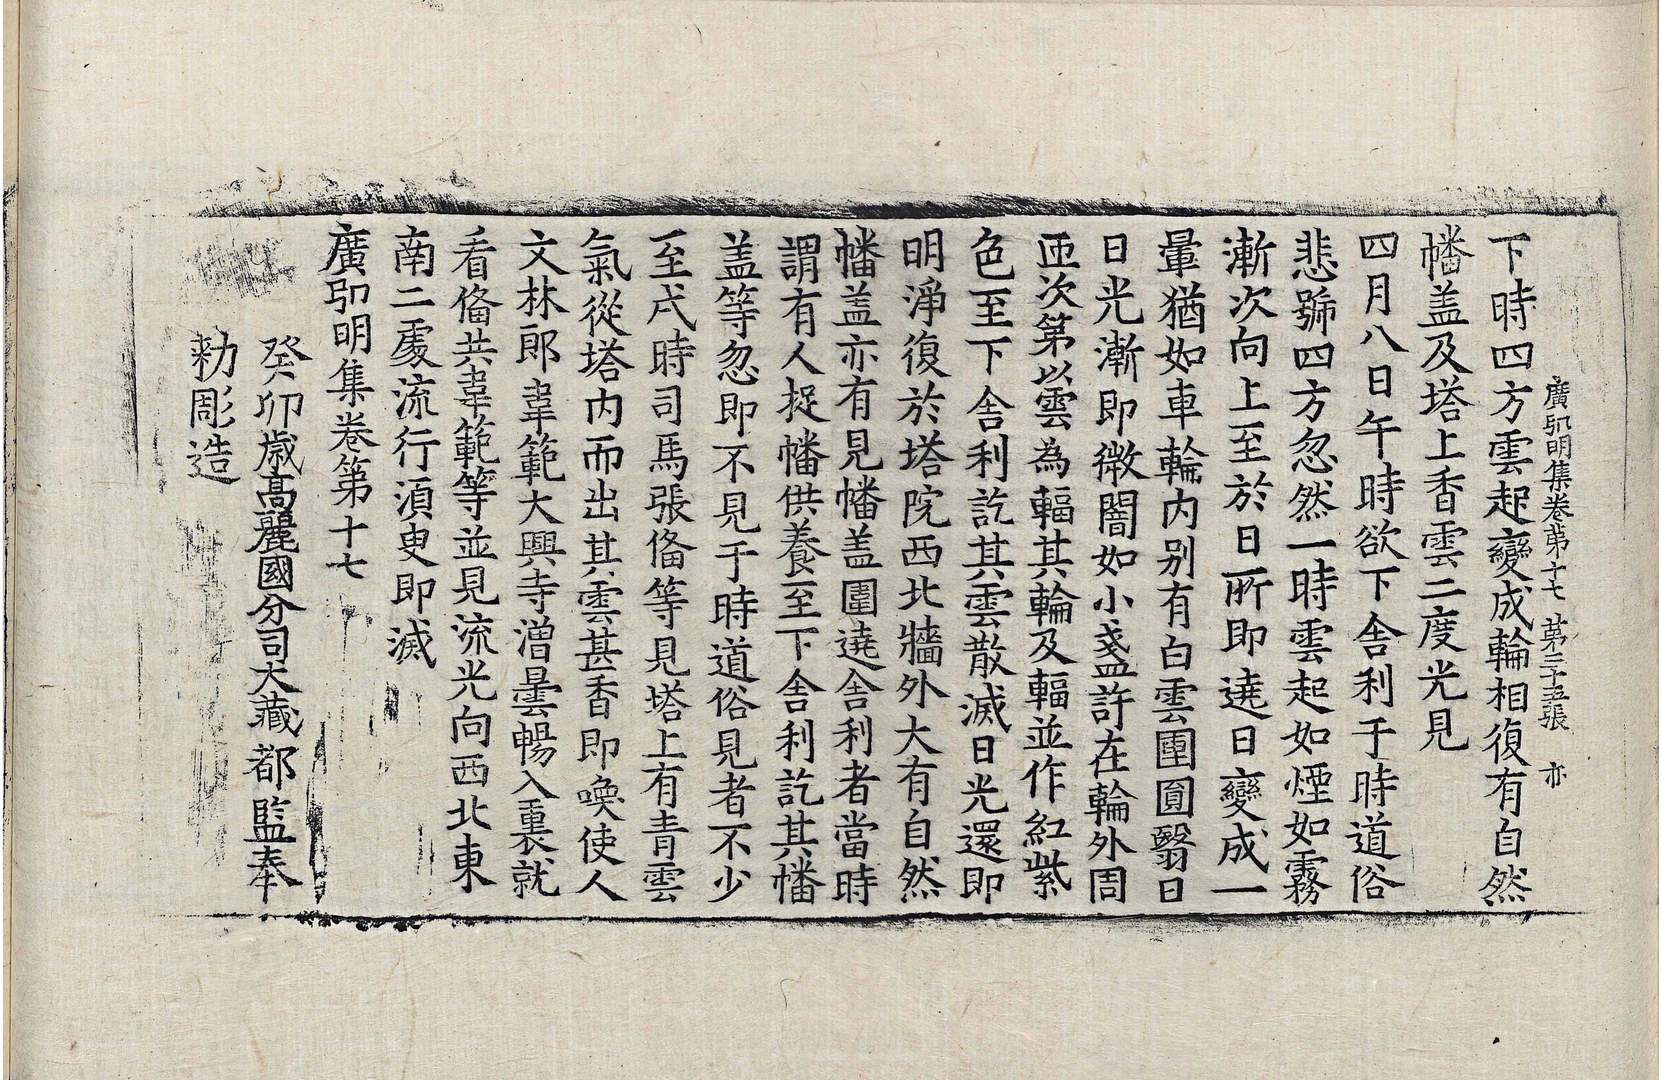 廣弘明集卷苐十七　苐三十五張　亦
下時四方雲起變成輪相復有自然
幡盖及塔上香雲二度光見
四月八日午時欲下舍利于時道俗
悲號四方忽然一時雲起如煙如霧
漸次向上至於日所即遶日變成一
暈猶如車輪内别有白雲團圓翳日
日光漸即微闇如小盞許在輪外周
匝次第以雲為輻其輪及輻並作紅紫
色至下舍利訖其雲散滅日光還即
明淨復於塔院西北牆外大有自然
幡盖亦有見幡盖圍遶舍利者當時
謂有人捉幡供養至下舍利訖其幡
盖等忽即不見于時道俗見者不少
至戌時司馬張俻等見塔上有青雲
氣從塔内而出其雲甚香即喚使人
文林郎韋範大興寺僧曇暢入裏就
看俻共韋範等並見流光向西北東
南二處流行須臾即滅
廣弘明集卷第十七
癸卯歳高麗國分司大藏都監奉
勑彫造